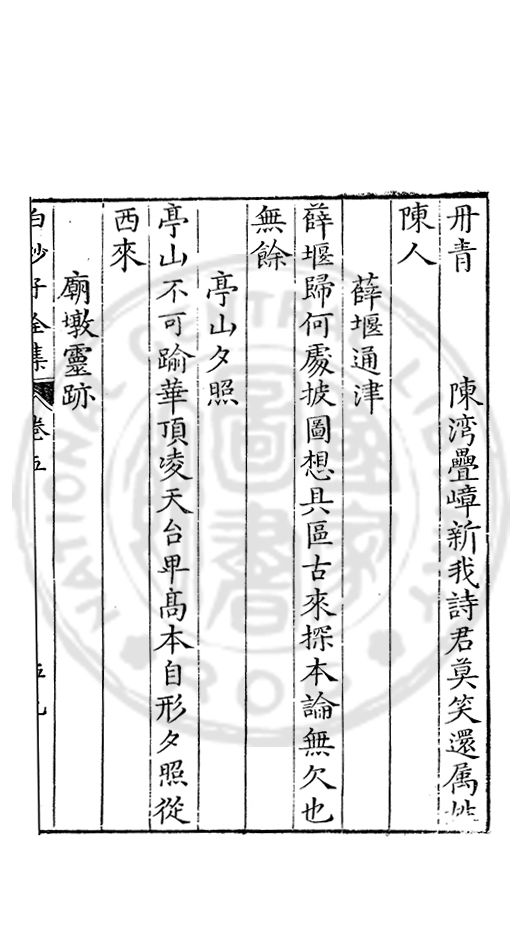 丹青　　陳湾疊嶂新我詩君莫笑還属姓
陳人
薛堰通津
薛堰歸何處披圖想具區古來探本論無欠也
無餘
亭山夕照
亭山不可踰華頂凌天台卑髙本自形夕照從
西來
廟墩靈跡
白沙子全集　卷五
NATIONAL CENTRAL LIBRARY